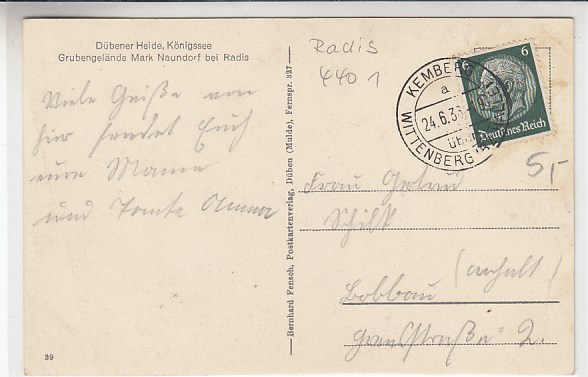 Dübener Heide, Königssee
Grubengelände Mark Naundorf bei Radis
Viele Grüße von
hier sendet Euch
eure Mama
und Tante Anna
39
Bernhard Fensch, Postkartenverlag, Düben (Mulde), Fernspr. 327
Radis
4401
KEMBERG
a
24.6.36
über
WITTENBERG
6
6
Deutsches Reich
5,-
Frau
Bobbau (Anhalt)
2.